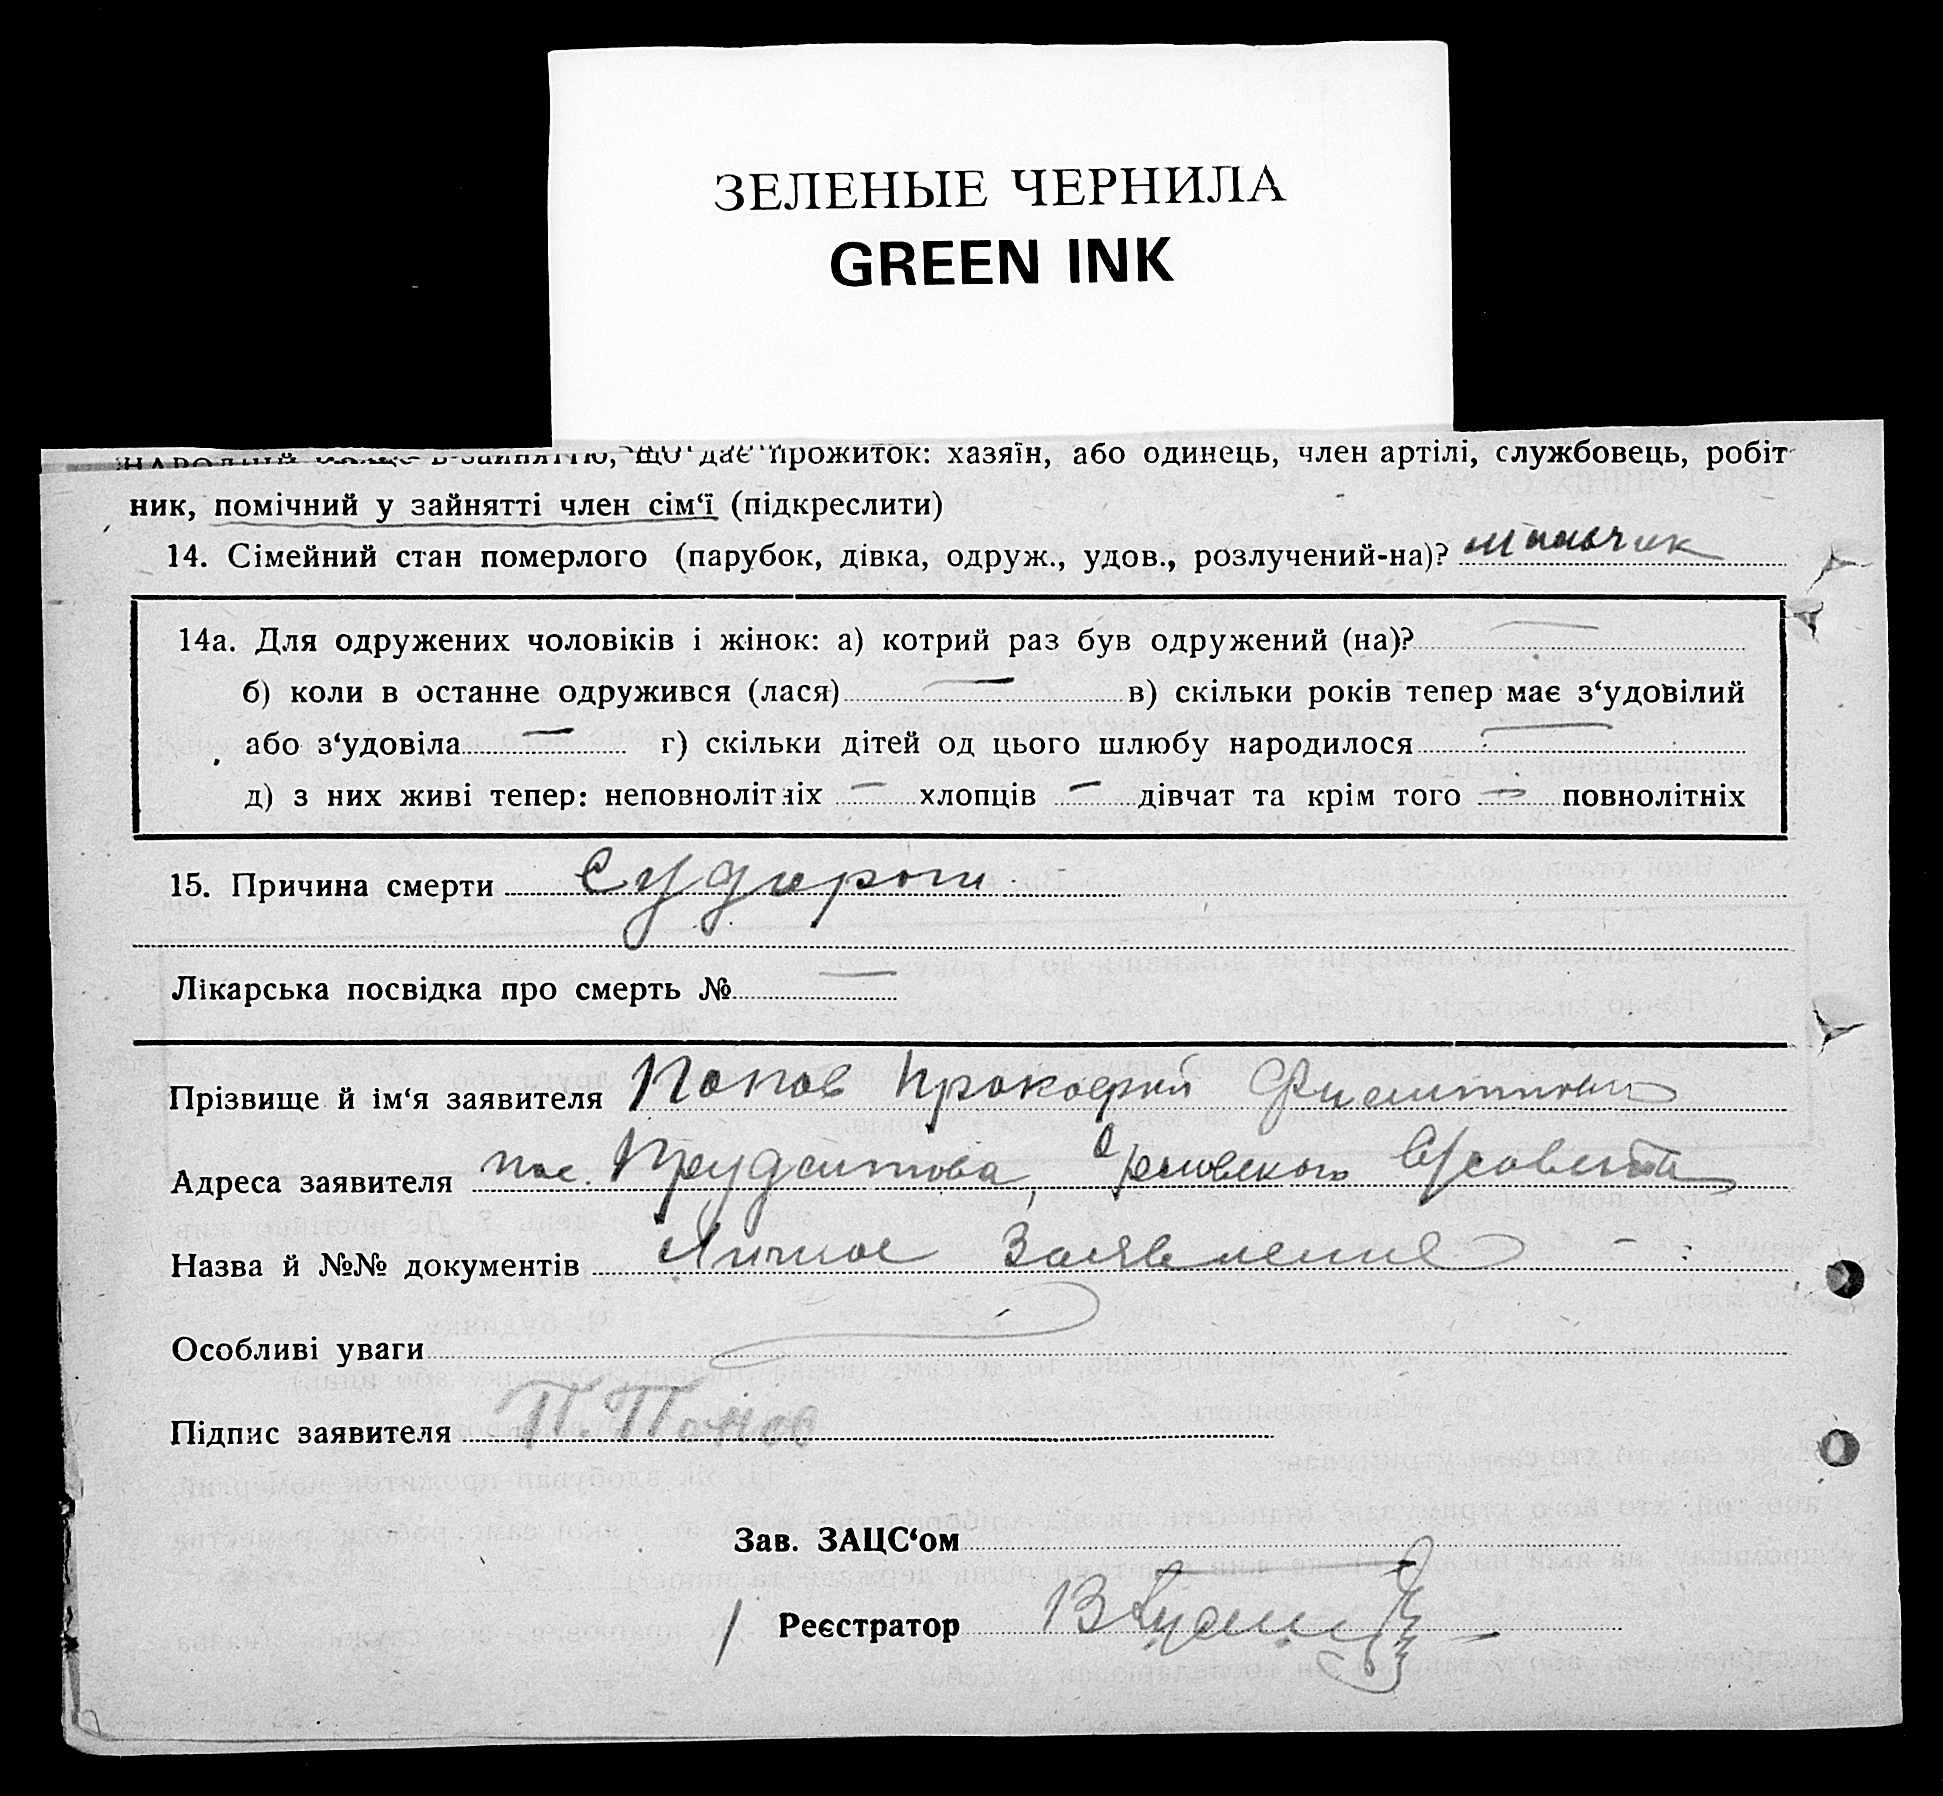 ЗЕЛЕНЫЕ ЧЕРНИЛА
GREEN INK
що дає прожиток: хазяїн, або одинець, член артілі, службовець, робіт-
ник, помічний у зайнятті член сім‘ї (підкреслити)
14. Сімейний стан померлого (парубок, дівка, одруж., удов., розлучений-на)? мальчик
14а. Для одружених чоловіків і жінок: а) котрий раз був одружений (на)? —
б) коли в останнє одружився (лася) — в) скільки років тепер має з‘удовілий
або з‘удовіла — г) скільки дітей од цього шлюбу народилося —
д) з них живі тепер: неповнолітніх — хлопців — дівчат та крім того — повнолітніх
15. Причина смерти Судороги
Лікарська посвідка про смерть № —
Прізвище й ім‘я заявителя Попов Прокофий
Адреса заявителя пос.
Назва й №№ документів Личное Заявление
Особливі уваги
Підпис заявителя П. Попов
Зав. ЗАЦС‘ом
Реєстратор